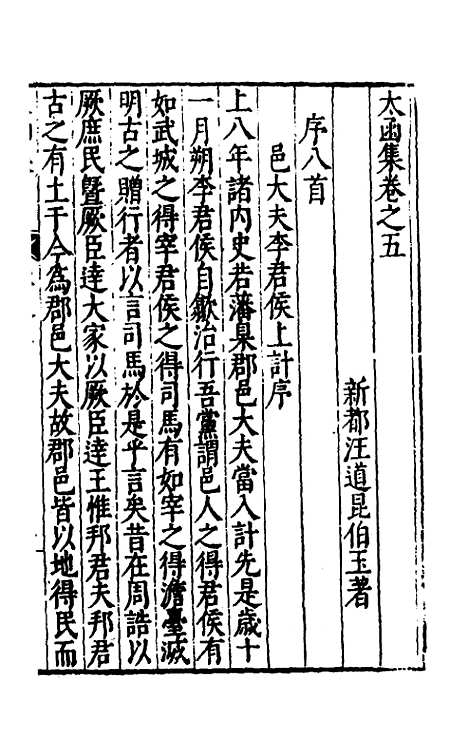 太函集卷之五
新都汪道昆伯玉著
序八首
邑大夫李君侯上計序
上八年諸内史若藩臬郡邑大夫當入計先是歲十
一月朔李君侯自歙治行吾黨謂邑人之得君侯有
如武城之得宰君侯之得司馬有如宰之得澹臺滅
明古之贈行者以言司馬於是乎言矣昔在周誥以
厥庶民暨厥臣達大家以厥臣達王惟邦君夫邦君
古之有土于今爲郡邑大夫故郡邑皆以地得民而